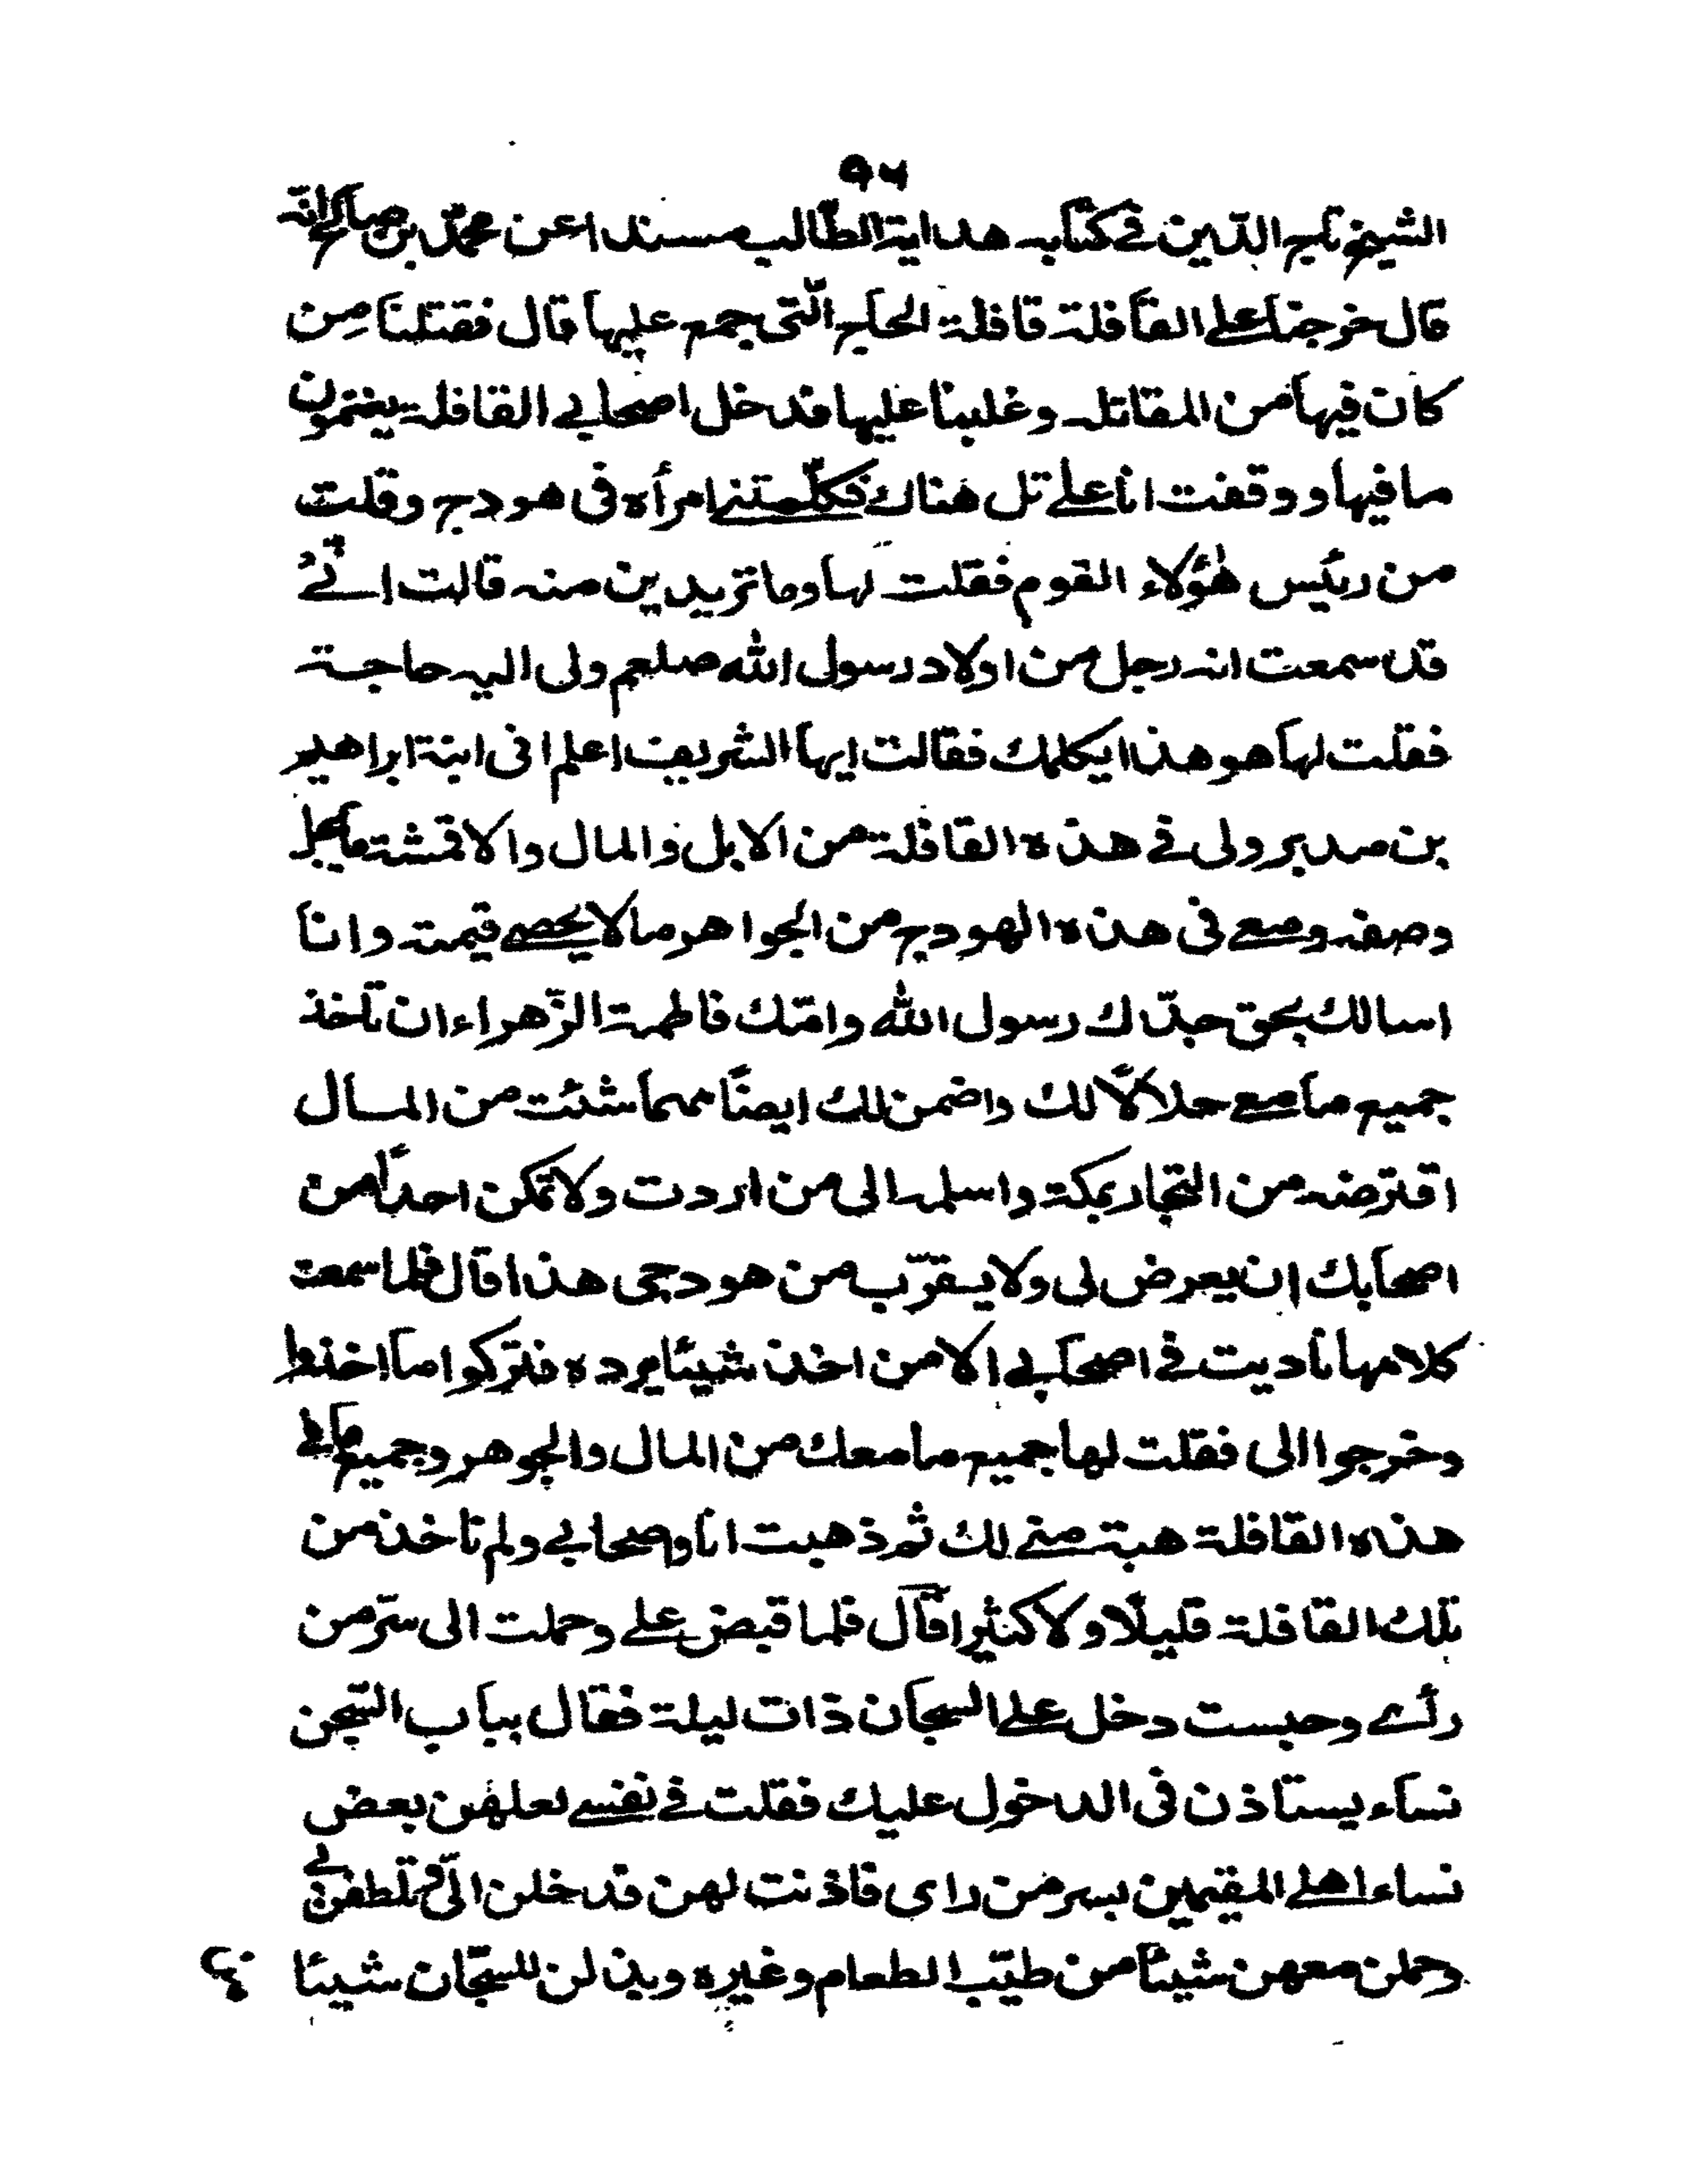 ٩٦
الشيخ تاج الدّين في كتابه هداية الطّالب مسندا عن محمّد بن صالح انّه
قال خرجنا على القافلة قافلة الحاج الّتى جمع عليها قال فقتلنا من
كان فيها من المقاتله وغلبنا عليها فدخل اصحابي القافلة يغنمون
ما فيها ووقفت انا على تل هناك فكلّمتني امرأه فى هودج وقلت
من رئيس هؤلاء القوم فقلت لها وما تريدين منه قالت انّي
قد سمعت انه رجل من اولاد رسول الله صلعم ولى اليه حاجة
فقلت لها هو هذا يكلمك فقالت ايها الشريف اعلم انى ابنة ابراهيم
بن مدبر ولى في هذه القافلة من الابل والمال والاقمشة ما يجل
وصفه ومعي فى هذه الهودج من الجواهر ما لا يحصى قيمته وانا
اسالك بحق جدّك رسول الله وامّك فاطمة الزّهراء ان تاخذ
جميع ما معي حلالًا لك واضمن لك ايضًا مهما شئت من المال
اقترضه من التجار بمكة واسلمه الى من اردت ولا تمكن احدًا من
اصحابك ان يعرض لى ولا يقرّب من هودجى هذا قال فلما سمعت
كلامها ناديت في اصحابي الا من اخذ شيئا يرده فتركوا ما اخذوا
وخرجوا الى فقلت لها جميع ما معك من المال والجوهر وجميع ما في
هذه القافلة هبة منّي لك ثم ذهبت انا واصحابي ولم ناخذ من
تلك القافلة قليلًا ولا كثيرا قال فلما قبض علي وحملت الى سرّ من
رأى وحبست دخل على السجان ذات ليلة فقال بباب السّجن
نساء يستاذن فى الدخول عليك فقلت في نفسي لعلهن بعض
نساء اهلي المقيمين بسر من راى فاذنت لهن فدخلن الىّ وتلطفن بي
وحملن معهن شيئًا من طيّب الطعام وغيره وبذلن للسجّان شيئا